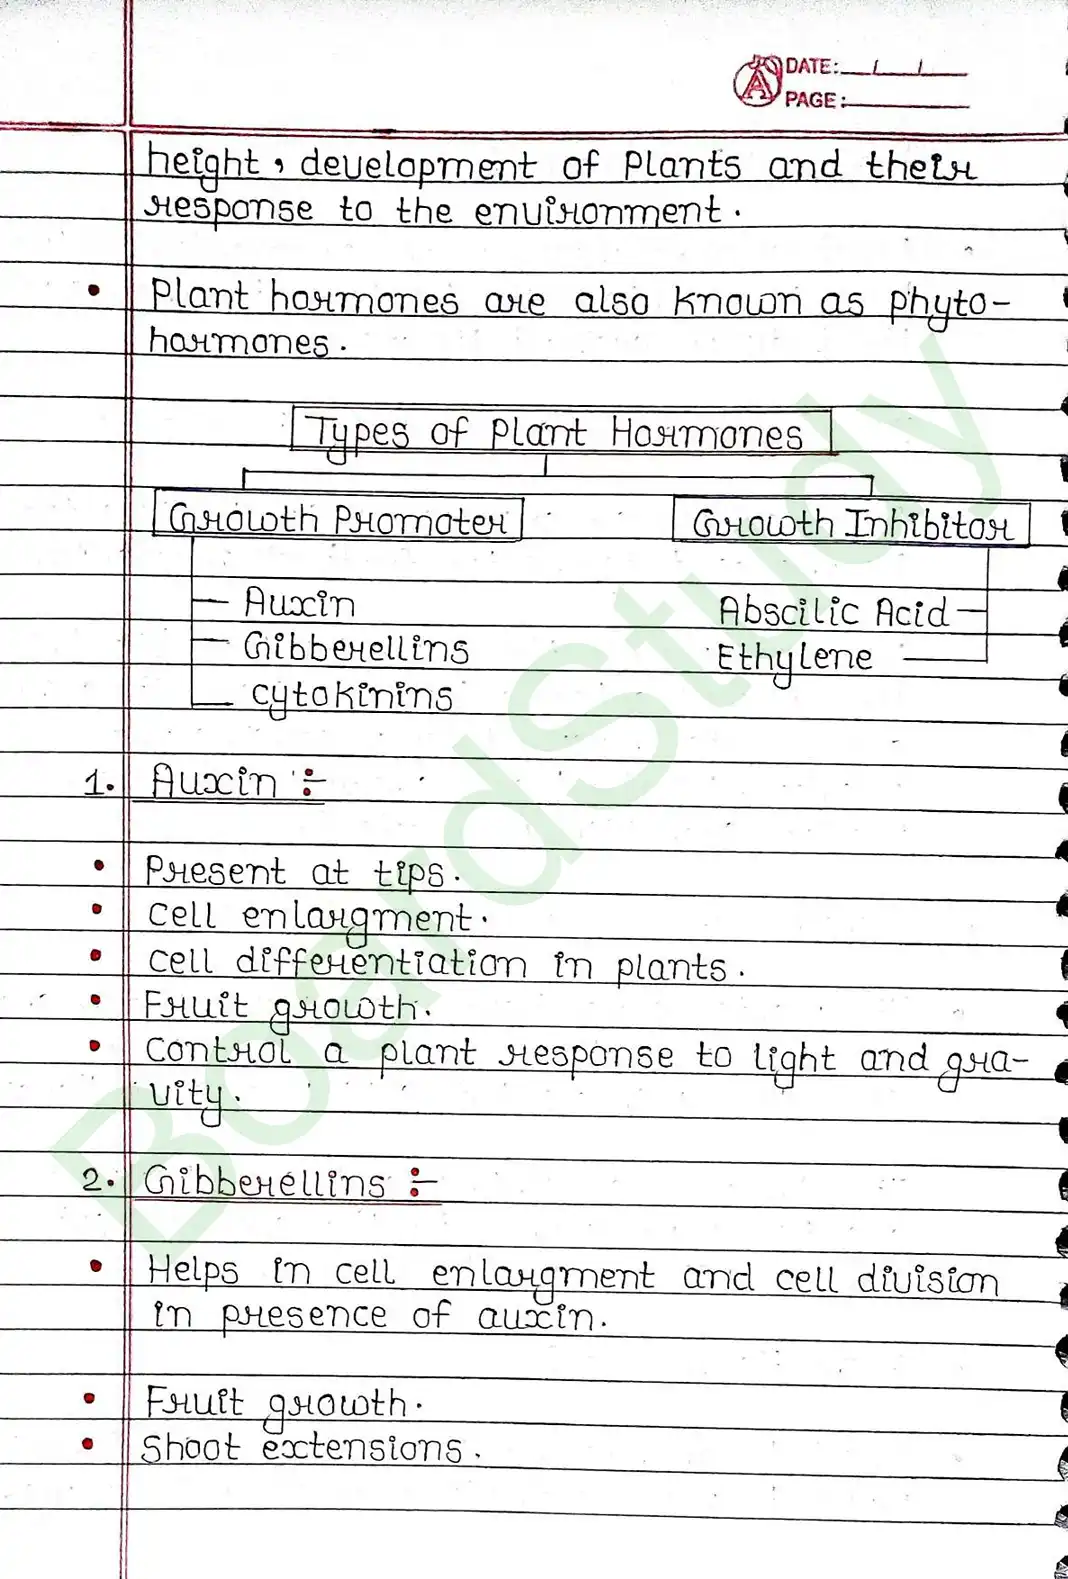 DATE: / /
PAGE:
height, development of Plants and their
response to the environment.
• Plant hormones are also known as phyto-
hormones.
Types of Plant Hormones
Growth Promoter Growth Inhibitor
Auxin
Gibberellins
cytokinins
Abscilic Acid
Ethylene
1. Auxin :-
• Present at tips.
• cell enlargment.
• cell differentiation in plants.
• Fruit growth.
• control a plant response to light and gra-
vity.
2. Gibberellins :-
• Helps in cell enlargment and cell division
in presence of auxin.
• Fruit growth.
• Shoot extensions.
BoardStudy